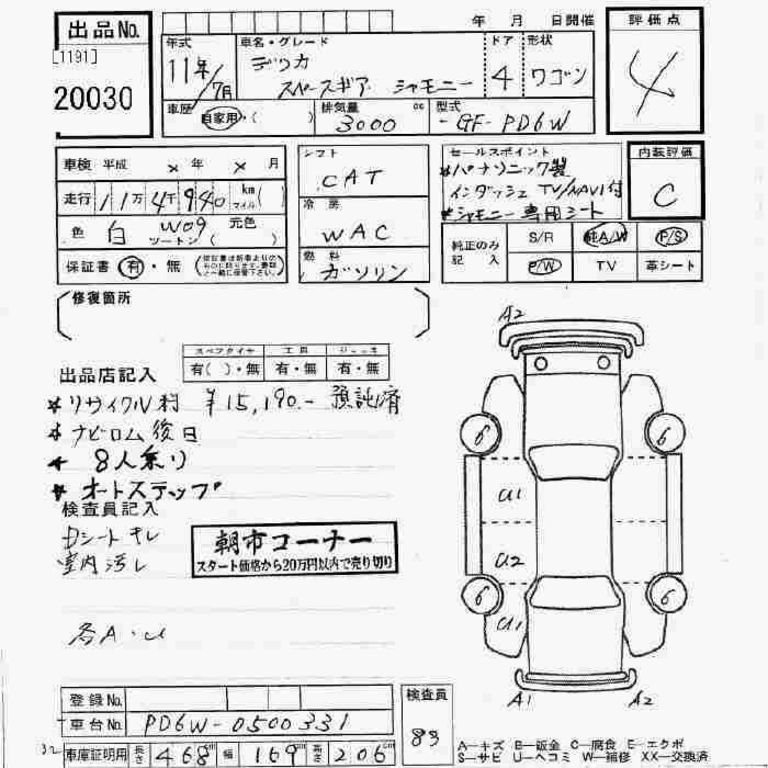 出品No.
[1191]
20030
年 月 日開催
年式 車名・グレード ドア 形状
11年/7月 デリカ スペースギア シャモニー 4 ワゴン
車歴 自家用・( ) 排気量 3000 cc 型式 -GF-PD6W
評価点
4
車検 平成 × 年 × 月
走行 11万4千940 km マイル ( )
色 白 W09 元色
ツートン( )
保証書 有・無
シフト
CAT
冷房
WAC
燃料
ガソリン
セールスポイント
*パナソニック製
インダッシュ TV/NAVI付
*シャモニー専用シート
内装評価
C
純正のみ記入 S/R 純A/W P/S
P/W TV 革シート
修復箇所
スペアタイヤ 工具 ジャッキ
有( )・無 有・無 有・無
出品店記入
*リサイクル料 ¥15,190.- 預託済
*ナビロム後日
*8人乗り
*オートステップ
検査員記入
Dシートキレ
室内汚レ
朝市コーナー
スタート価格から20万円以内で売り切り
各A・U
A2
6 6
U1
U2
6 6
U1
A1 A2
登録No.
車台No. PD6W-0500331
32 車庫証明用 長さ 468cm 幅 169cm 高さ 206cm
検査員
83
A―キズ B―鈑金 C―腐食 E―エクボ
S―サビ U―ヘコミ W―補修 XX―交換済